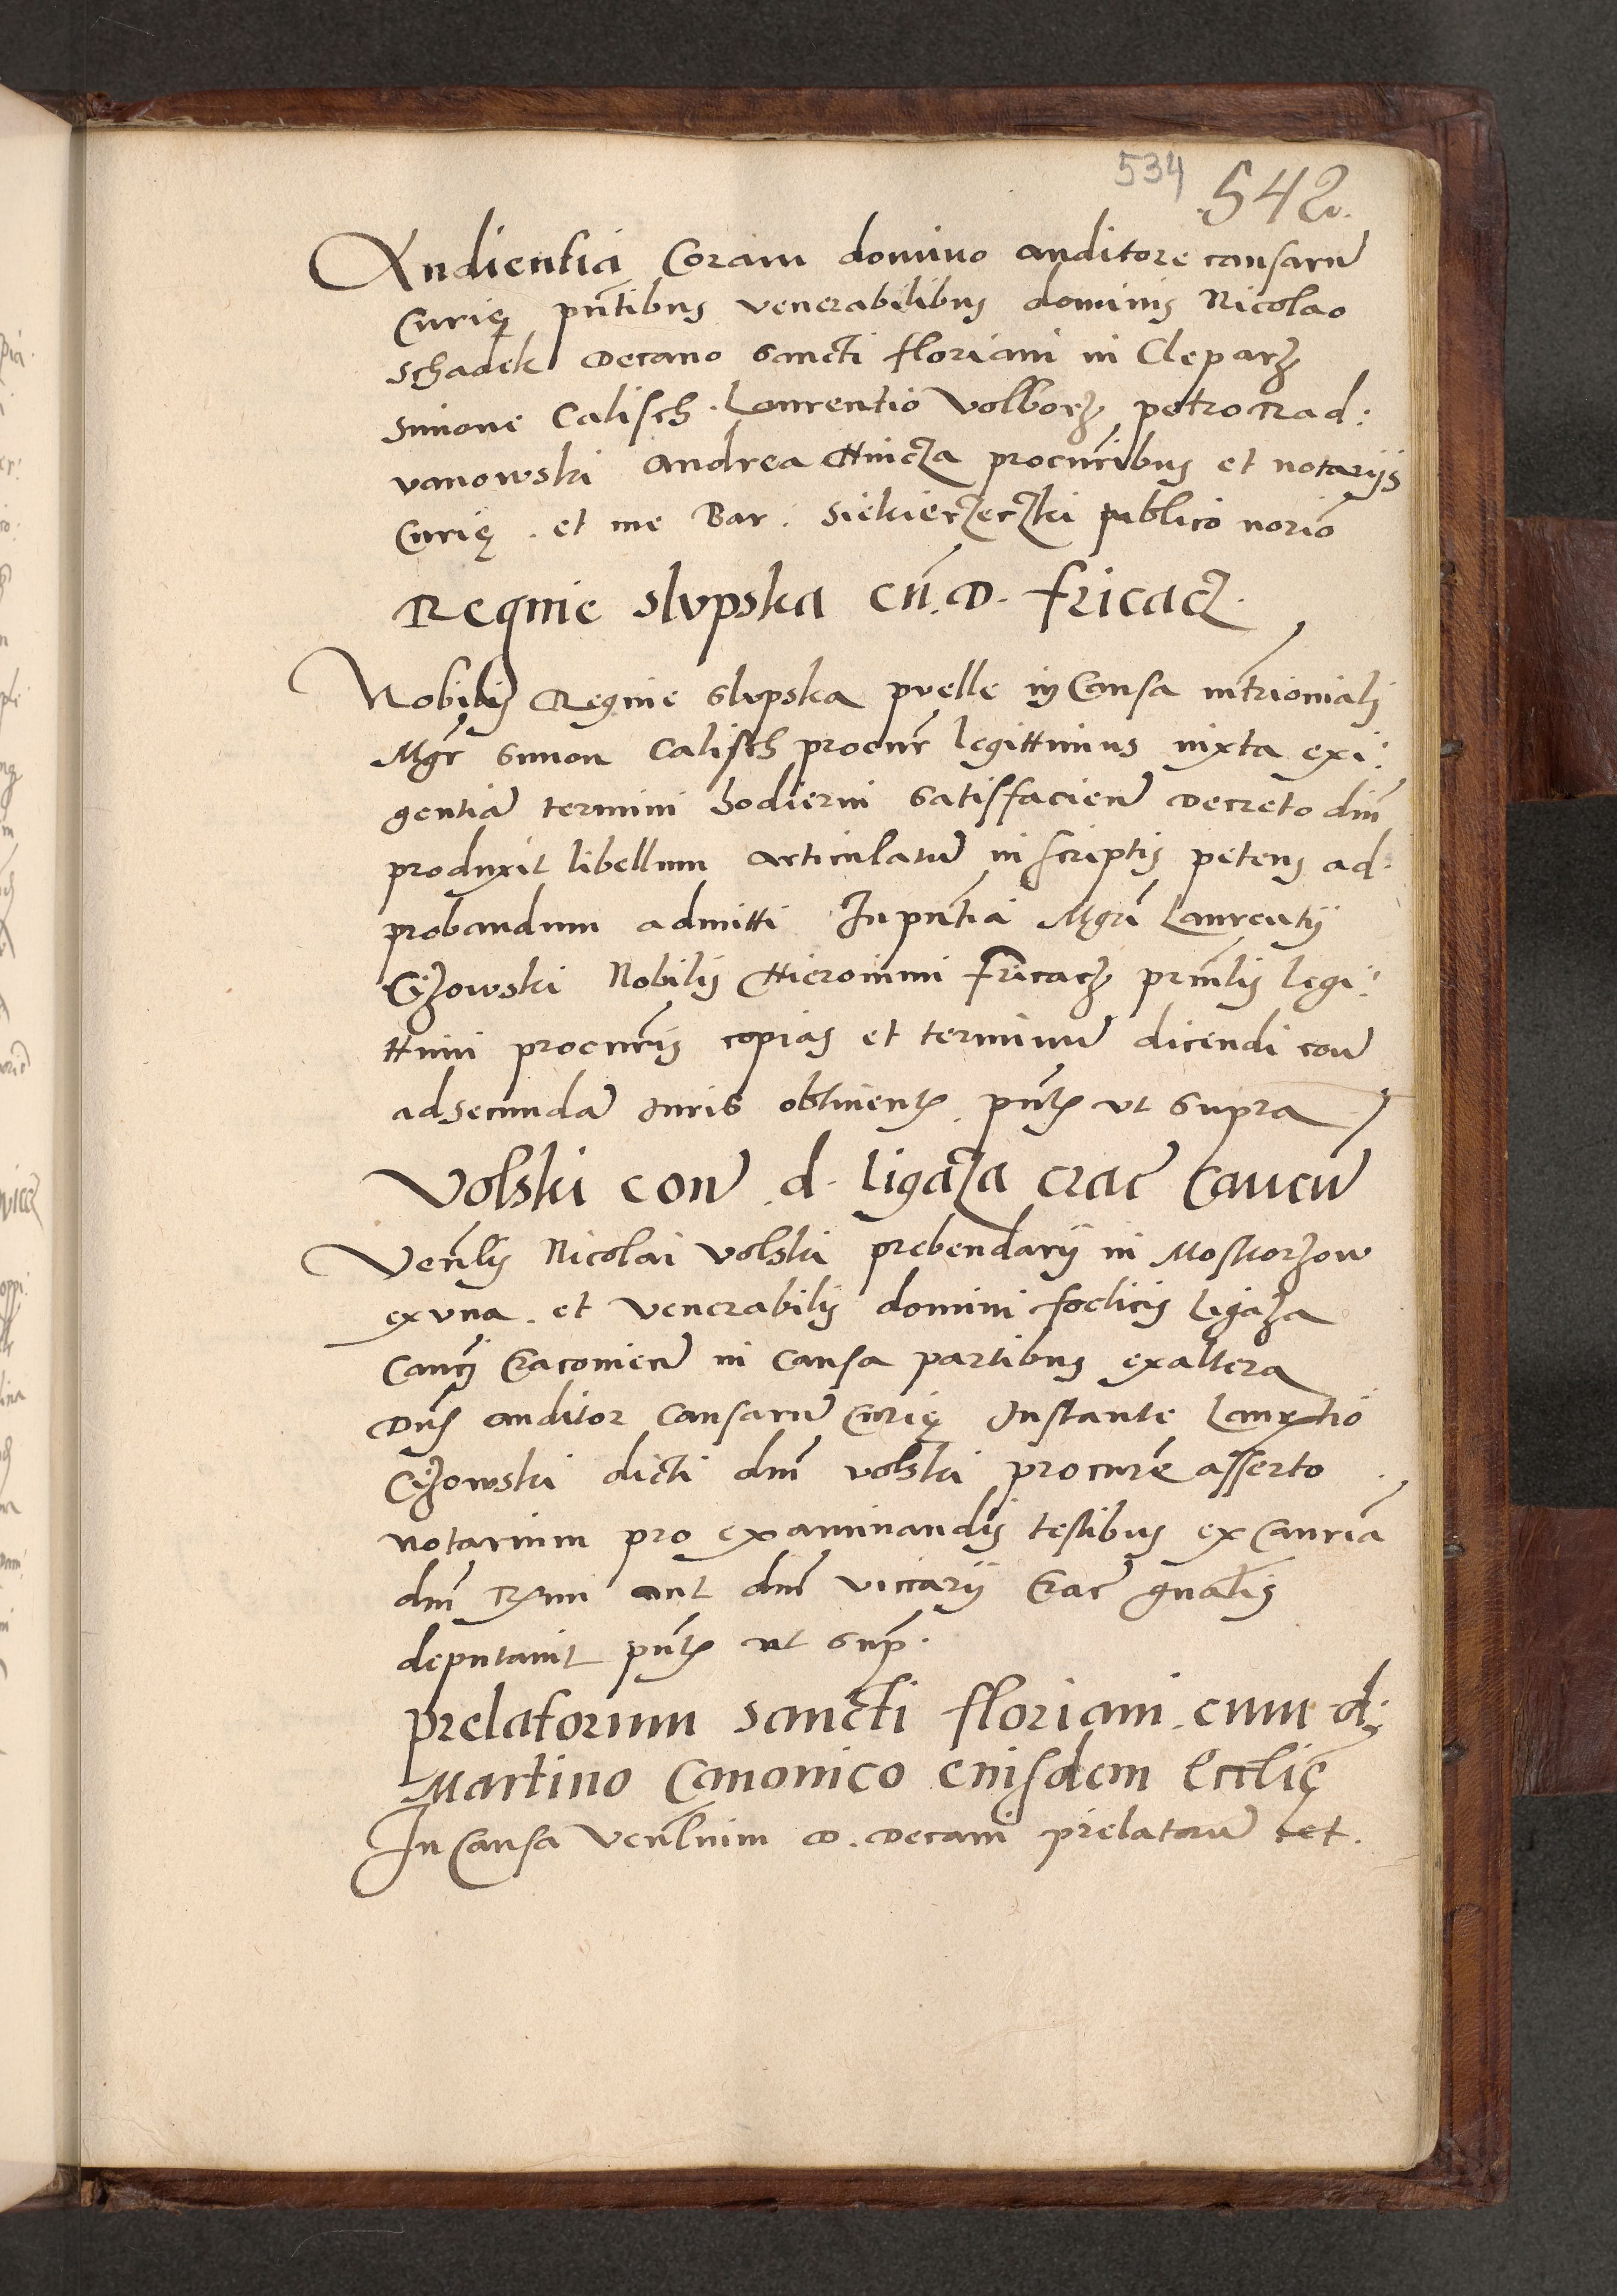 534 542.
Audientia Coram domino auditore causarum̄
Curię pn̄tibus venerabilibus dominis Nicolao
Schadek Decano Sancti floriani in Cleparz
Simone Calisch. Laurentio Volborz petro Rad:
vanowski Andrea Hincza procur̄ibus et notarijs
Curię. et me Bar. Siekierzeczki publico nořio
Regine Slupska cū. D. fricacz.
Nobilis Regine Slupska puelle in Causa mr̄imoniali
Mgr̄ Simon Calisch procur̄ legittimus iuxta exi:
gentiā termini hodierni Satisfacieñ Decreto dn̄i
produxit libellum articulatū in scriptis petens ad
probandum admitti In pn̄tia Mgr̄i Laurentij
Czyzowski Nobilis Hieronimi fricacz prīnlis legi:
ttimi procur̄is copias et terminū dicendi con̄
ad secundā Iuris obtineñ. pn̄t ut Supra
Volski con̄ d. Ligaza crac̄ Canc̄u
Veñlis Nicolai Volski prebendarij in Moskorzow
ex vna. et venerabilis domini foelicis Ligaza
Canci Cracovieñ in causa partibus ex altera
Dn̄s auditor Causarū Curię Instante Laurentio
Czyzowski dicti dn̄i volski procur̄e asserto
notarium pro examinandis testibus ex Can̄ria
dn̄i R̄mi aut dn̄i viccarij Crac̄ gnālis
deputavit pn̄t ut Sup.
Prelatorum Sancti floriani. cum d.
Martino Canonico eiusdem Eccl̄ię
In Causa Ven̄lium D. Decani prelatorū cet.